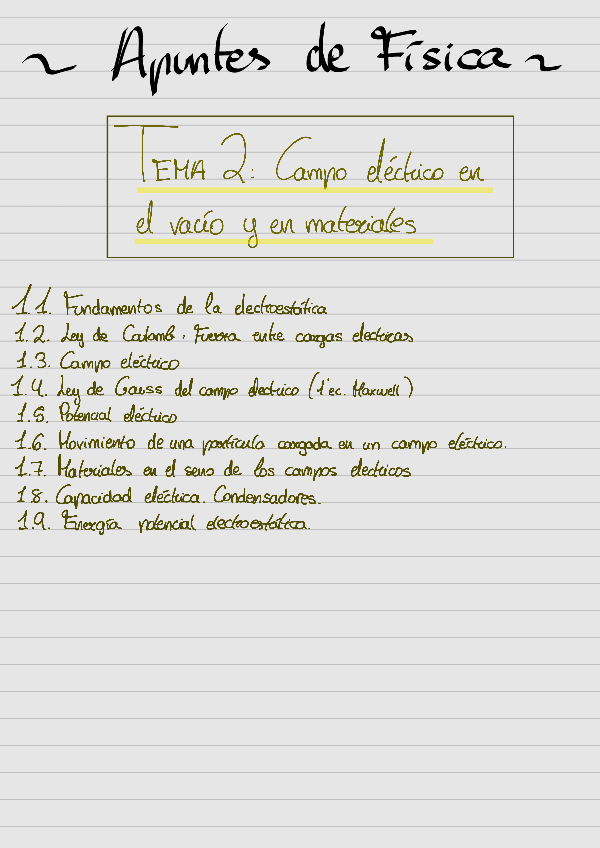 ~ Apuntes de Física ~
TEMA 2: Campo eléctrico en
el vacío y en materiales
1.1. Fundamentos de la electroestática
1.2. Ley de Coulomb. Fuerza entre cargas electricas
1.3. Campo eléctrico
1.4. Ley de Gauss del campo electrico (1ª ec. Maxwell)
1.5. Potencial eléctrico
1.6. Movimiento de una partícula cargada en un campo eléctrico.
1.7. Materiales en el seno de los campos electricos
1.8. Capacidad eléctrica. Condensadores.
1.9. Energía potencial electroestática.